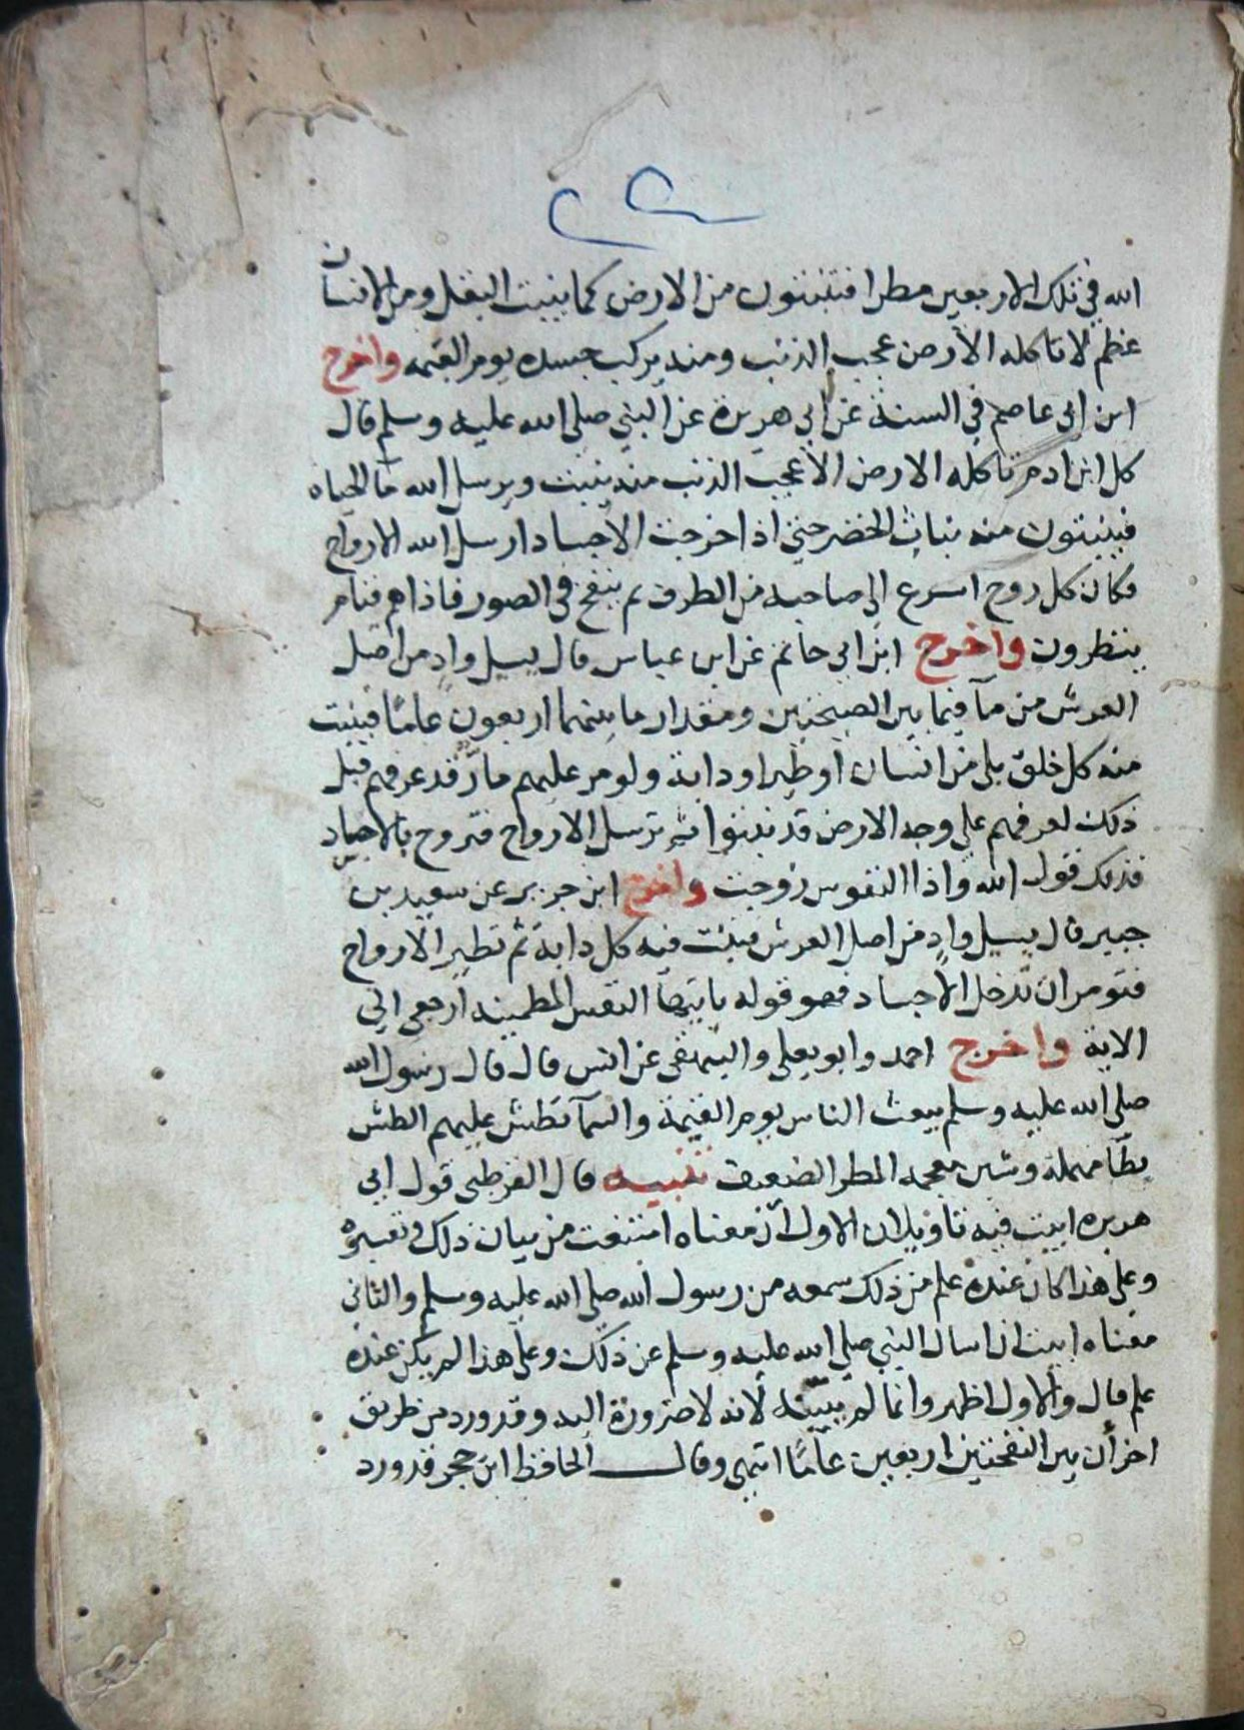 الله في تلك الاربعين مطرا فتنبتون من الارض كما ينبت البقل ومن الانسان
عظم لا تاكله الارض عجب الذنب ومنه يركب جسده يوم القيمه واخرج
ابن ابي عاصم في السنة عن ابي هريرة عن النبي صلى الله عليه وسلم قال
كل ابن ادم تاكله الارض الا عجب الذنب منه ينبت ويرسل الله مآ الحياه
فينبتون منه نبات الخضر حتى اذا خرجت الاجساد ارسل الله الارواح
فكان كل روح اسرع الى صاحبه من الطرف ثم ينفخ في الصور فاذا هم قيام
ينظرون واخرج ابن ابي حاتم عن ابن عباس قال يسيل وادٍ من اصل
العرش من مآ فيما بين الصيحتين ومقدار ما بينهما اربعون عامًا فينبت
منه كل خلق بلي من انسان او طير او دابة ولو مر عليهم مارّ قد عرفهم قبل
ذلك لعرفهم على وجه الارض قد نبتوا ثم ترسل الارواح فتزوج بالاجساد
فذلك قول الله واذا النفوس زوجت واخرج ابن جرير عن سعيد بن
جبير قال يسيل وادٍ من اصل العرش فينبت فيه كل دابة ثم تطير الارواح
فتومر ان تدخل الاجساد فهو قوله يايتها النفس المطمينه ارجعي الي
الاية واخرج احمد وابو يعلى والبيهقي عن انس قال قال رسول الله
صلى الله عليه وسلم يبعث الناس يوم القيمة والسمآ تطش عليهم الطش
بطآ مهملة وشين معجمه المطر الضعيف تنبيه قال القرطبي قول ابي
هريره ابيت فيه تاويلان الاول ان معناه امتنعت من بيان ذلك وتفسيره
وعلى هذا كان عنده علم من ذلك سمعه من رسول الله صلى الله عليه وسلم والثاني
معناه ابيت ان اسال النبي صلى الله عليه وسلم عن ذلك وعلى هذا لم يكن عنده
علم قال والاول اظهر وانما لم يبيّنه لانه لا ضرورة اليه وقد ورد من طريق
اخر أن بين النفختين اربعين عامًا انتهى وقال الحافظ ابن حجر قد ورد